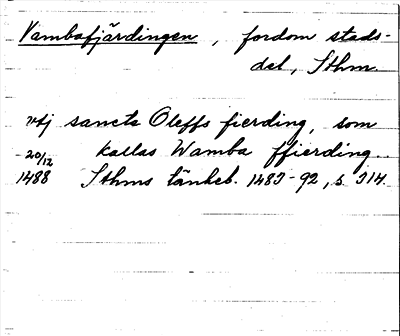 Vambafjärdingen, fordom stads-
del, Sthm.
vtj sancte Oleffs fierding, som
20/12 kallas Wamba ffierding
1488 Sthms tänkeb. 1483-92, s. 314.